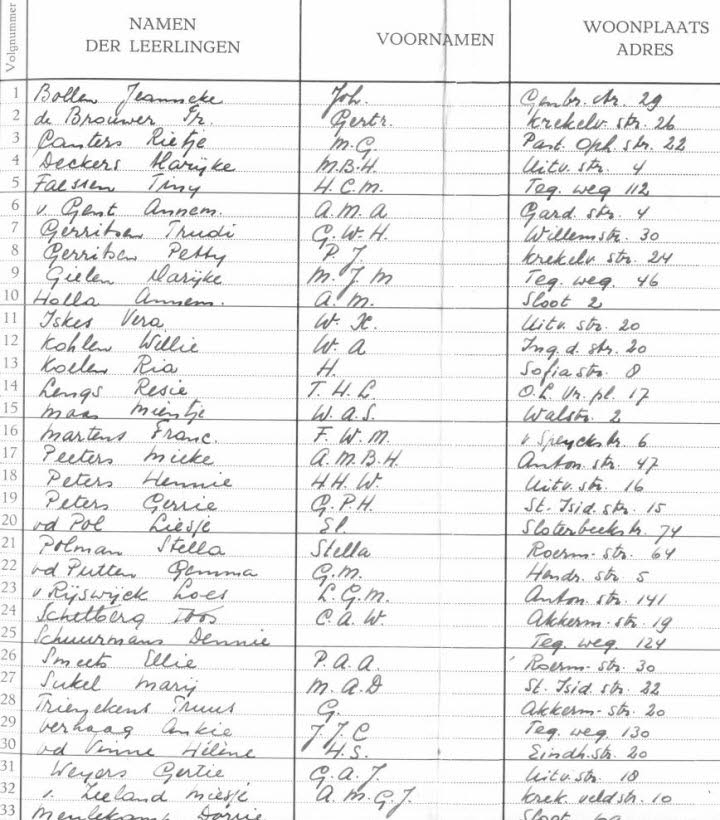 Volgnummer NAMEN DER LEERLINGEN VOORNAMEN WOONPLAATS ADRES
1 Bollen Jeanneke Joh. 29
2 de Brouwer Tr. Gertr. Krekelv. str. 26
3 Canters Rietje M.G. Past. Oph. str. 22
4 Deckers Marijke M.B.H. Uitv. str. 4
5 Faessen Tiny H.C.M. Teg. weg 112
6 v. Gent Annem. A.M.A Gard. str. 4
7 Gerritsen Trudi G.W.H. Willemstr. 30
8 Gerritsen Petty P.J. Krekelv. str. 24
9 Gielen Marijke M.J.M Teg. weg. 46
10 Holla Annem. A.M. Sloot 2
11 Iskes Vera W. Uitv. str. 20
12 Kohlen Willie W.A Ing. d. str. 20
13 Koelen Ria H. Sofiastr. 8
14 Lengs Resie T.H.L. O.L. Vr. pl. 17
15 Maas Mientje W.A.S. Walstr. 2
16 Martens Franc. F.W.M. v Speyckstr. 6
17 Peeters Mieke A.M.B.H. Anton. str. 47
18 Peters Hennie H.H.W. Uitv. str. 16
19 Peters Gerrie G.P.H. St. Isid. str. 15
20 vd Pol Liesje El. Sloterbeekstr. 74
21 Polman Stella Stella Roerm. str. 64
22 vd Putten Gemma G.M. Hendr. str 5
23 v Rijswijck Loes L.G.M. Anton. str. 141
24 Schelberg Toos C.A.W. Akkerm. str. 19
25 Schuurmans Dennie Teg. weg. 124
26 Smeets Ellie P.A.A. Roerm. str. 30
27 Sukel Marij M.A.D St. Isid. str. 22
28 Trienekens Truus G. Akkerm. str. 20
29 Verhaag Ankie J.J.C Teg. weg. 130
30 vd Vinne Hélène H.S. Eindh. str. 20
31 Weyers Gertie G.A.J. Uitv. str. 18
32 v. Zeeland Miesje A.M.G.J. Krek. veldstr. 10
33 Meulekamp Dorrie Sloot